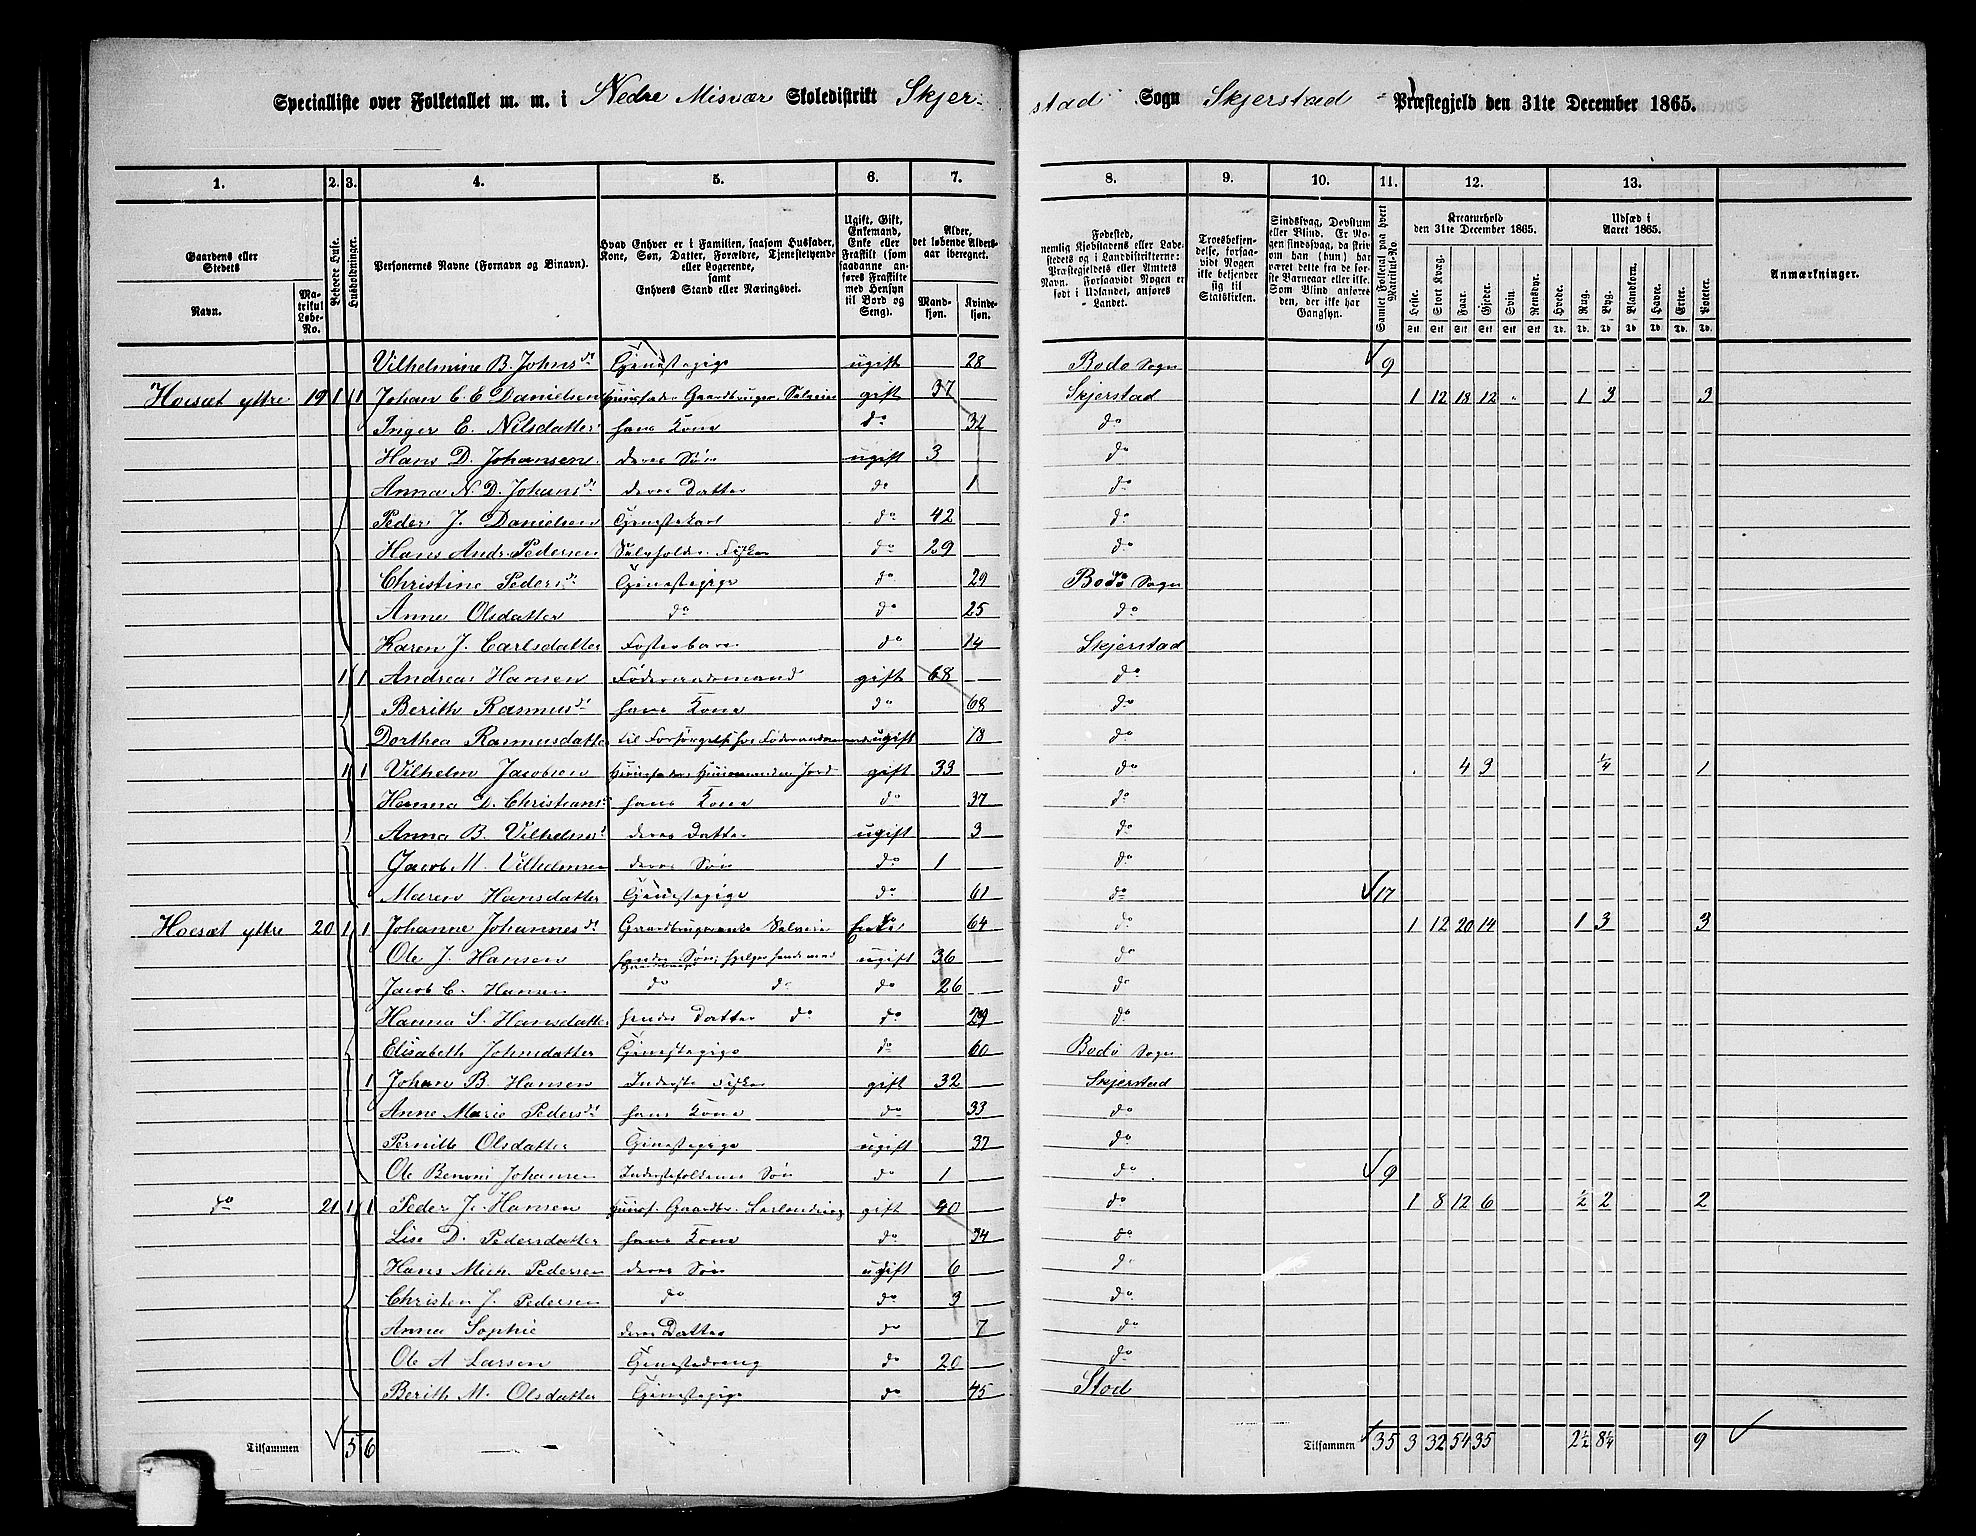 Specialliste over Folketallet m. m. i Nedre Misvær Skoledistrikt Skjerstad Sogn Skjerstad Præstegjeld den 31te December 1865.
1. 2. 3. 4. 5. 6. 7. 8. 9. 10. 11. 12. 13.
Gaardens eller Stedets
Navn.
Matrikul Løbe-No.
Beboede Huse.
Husholdninger.
Personernes Navne (Fornavn og Binavn).
Hvad Enhver er i Familien, saasom Husfader, Kone, Søn, Datter, Forældre, Tjenestetyende eller Logerende, samt Enhvers Stand eller Næringsvei.
Ugift, Gift, Enkemand, Enke eller Fraskilt (som saadanne anføres Fraskilte med Hensyn til Bord og Seng).
Alder, det løbende Alders-aar iberegnet.
Mandkjøn. Kvindekjøn.
Fødested, nemlig Kjøbstadens eller Ladestedets og i Landdistrikterne: Præstegjeldets eller Amtets Navn. Forsaavidt Nogen er født i Udlandet, anføres Landet.
Troesbekjendelse, forsaavidt Nogen ikke bekjender sig til Statskirken.
Sindssvag, Døvstum eller Blind. Er Nogen sindssvag, da skriv om han (hun) har været dette fra de første Barneaar eller ikke. Som Blind ansees den, der ikke har Gangsyn.
Samlet Folketal paa hvert Matrikul-No.
Kreaturhold den 31te December 1865.
Heste. Stort Kvæg. Faar. Gjeder. Svin. Rensdyr.
Udsæd i Aaret 1865.
Hvede. Rug. Byg. Blandkorn. Havre. Erter. Poteter.
Anmærkninger.
Vilhelmine B. Johnsd. Tjenestepige ugift 28 Bodø Sogn 9
Hoesæt ytre 19 1 1 Johan C E Danielsen Huusfader Gaardbruger Selveier gift 37 Skjerstad 1 12 18 12 1 3 3
Inger E. Nilsdatter hans Kone do 32 do
Hans D. Johansen deres Søn ugift 3 do
Anna N. D. Johansd. deres Datter do 1 do
Peder J. Danielsen Tjenestekarl do 42 do
Hans Andr. Pedersen Selvholden Fisker do 29 do
Christine Pedersd. Tjenestepige do 29 Bodø Sogn
Anne Olsdatter do do 25 do
Karen J. Carlsdatter Fosterbarn do 14 Skjerstad
1 1 Andreas Hansen Føderaadsmand gift 68 do
Berith Rasmusd. hans Kone do 68 do
Dorthea Rasmusdatter til Forsørgelse hos Føderaadsmand ugift 18 do
1 1 Vilhelm Jacobsen Huusfader Huusmand m Jord gift 33 do 4 3 1/4 1
Hanna D. Christiansd. hans Kone do 37 do
Anna B. Vilhelmsd. deres Datter ugift 3 do
Jacob M. Vilhelmsen deres Søn do 1 do
Maren Hansdatter Tjenestepige do 61 do 17
Hoesæt ytre 20 1 1 Johanne Johannesd. Gaardbrugerenke Selveier Enke 64 do 1 12 20 14 1 3 3
Ole J. Hansen hendes Søn, hjelper hende med Gaardbruget ugift 36 do
Jacob C. Hansen do do do 26 do
Hanna S. Hansdatter hendes Datter do do 29 do
Elisabeth Johnsdatter Tjenestepige do 60 Bodø Sogn
1 Johan B Hansen Inderste Fisker gift 32 Skjerstad
Anne Marie Pedersd. hans Kone do 33 do
Pernille Olsdatter Tjenestepige ugift 37 do
Ole Benoni Johansen Inderstefolkenes Søn do 1 do 9
do 21 1 1 Peder J. Hansen Huusf. Gaardbr. Leilending gift 40 do 1 8 12 6 1/2 2 2
Lise D. Pedersdatter hans Kone do 34 do
Hans Mich. Pedersen deres Søn ugift 6 do
Christen J. Pedersen do do 3 do
Anna Sophie deres Datter do 7 do
Ole A Larsen Tjenestedreng do 20 do
Berith M. Olsdatter Tjenestepige do 45 Stod
Tilsammen 5 6 Tilsammen 35 3 32 54 35 2 1/2 8 1/4 9